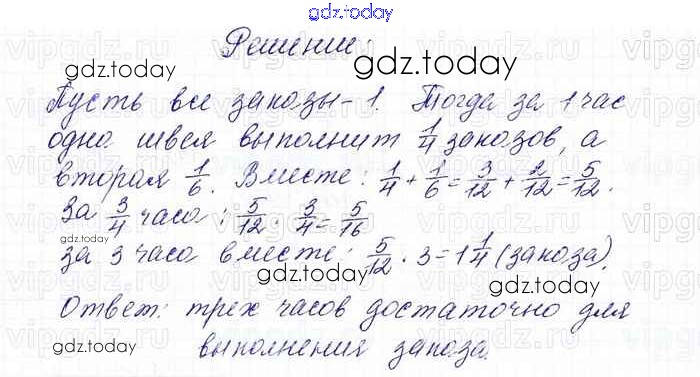 gdz.today
Решение:
gdz.today
gdz.today
Пусть все заказы - 1. Тогда за 1 час
одна швея выполнит 1/4 заказов, а
вторая 1/6. Вместе: 1/4 + 1/6 = 3/12 + 2/12 = 5/12.
За 3/4 часа: 5/12 · 3/4 = 5/16
gdz.today
за 3 часа вместе: 5/12 · 3 = 1 1/4 (заказа).
gdz.today
gdz.today
Ответ: трех часов достаточно для
gdz.today
выполнения заказа.